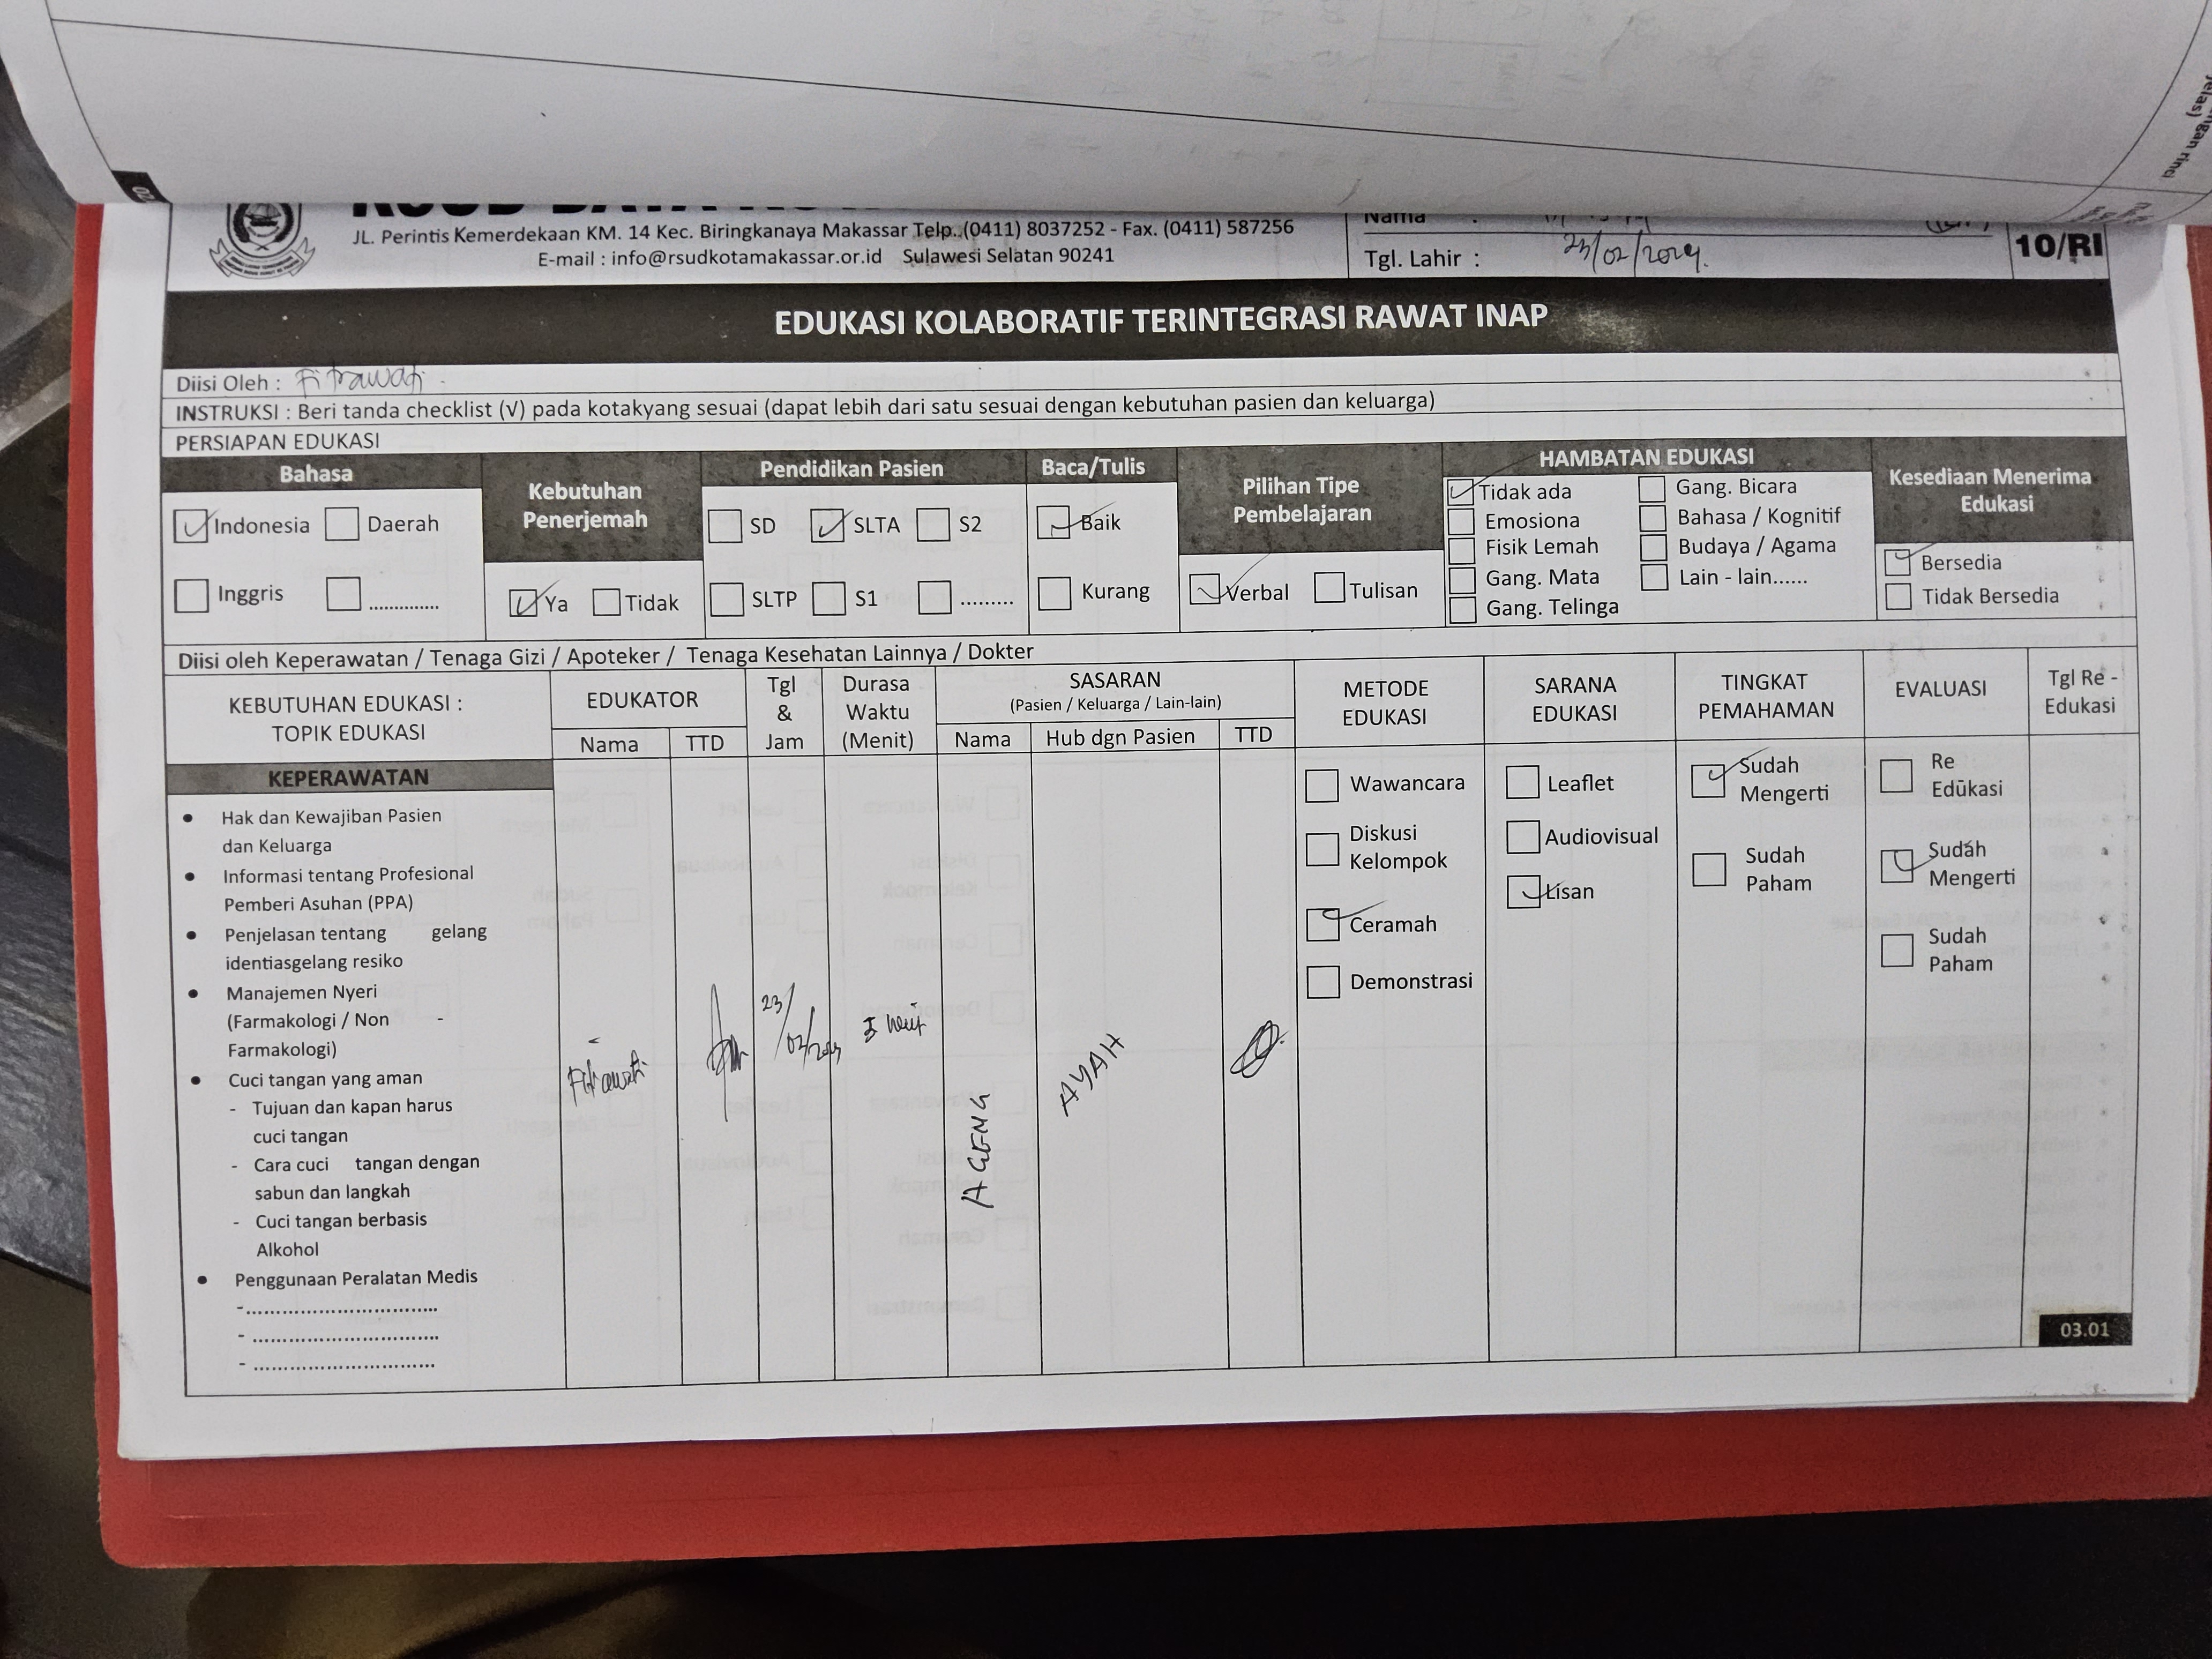 JL. Perintis Kemerdekaan KM. 14 Kec. Biringkanaya Makassar Telp. (0411) 8037252 - Fax. (0411) 587256
E-mail : info@rsudkotamakassar.or.id Sulawesi Selatan 90241
Nama :
Tgl. Lahir : 23/02/2024.
10/RI
EDUKASI KOLABORATIF TERINTEGRASI RAWAT INAP
Diisi Oleh : Fitrawati
INSTRUKSI : Beri tanda checklist (√) pada kotakyang sesuai (dapat lebih dari satu sesuai dengan kebutuhan pasien dan keluarga)
PERSIAPAN EDUKASI
Bahasa
Indonesia Daerah
Inggris .............
Kebutuhan
Penerjemah
Ya Tidak
Pendidikan Pasien
SD SLTA S2
SLTP S1 .........
Baca/Tulis
Baik
Kurang
Pilihan Tipe
Pembelajaran
Verbal Tulisan
HAMBATAN EDUKASI
Tidak ada Gang. Bicara
Emosiona Bahasa / Kognitif
Fisik Lemah Budaya / Agama
Gang. Mata Lain - lain......
Gang. Telinga
Kesediaan Menerima
Edukasi
Bersedia
Tidak Bersedia
Diisi oleh Keperawatan / Tenaga Gizi / Apoteker / Tenaga Kesehatan Lainnya / Dokter
KEBUTUHAN EDUKASI :
TOPIK EDUKASI
EDUKATOR
Nama TTD
Tgl
&
Jam
Durasa
Waktu
(Menit)
SASARAN
(Pasien / Keluarga / Lain-lain)
Nama Hub dgn Pasien TTD
METODE
EDUKASI
SARANA
EDUKASI
TINGKAT
PEMAHAMAN
EVALUASI
Tgl Re -
Edukasi
KEPERAWATAN
• Hak dan Kewajiban Pasien
dan Keluarga
• Informasi tentang Profesional
Pemberi Asuhan (PPA)
• Penjelasan tentang gelang
identiasgelang resiko
• Manajemen Nyeri
(Farmakologi / Non -
Farmakologi)
• Cuci tangan yang aman
- Tujuan dan kapan harus
cuci tangan
- Cara cuci tangan dengan
sabun dan langkah
- Cuci tangan berbasis
Alkohol
• Penggunaan Peralatan Medis
-................................
- ...............................
- ..............................
Fitrawati
23/
02/2024
AGENG
AYAH
Wawancara
Diskusi
Kelompok
Ceramah
Demonstrasi
Leaflet
Audiovisual
Lisan
Sudah
Mengerti
Sudah
Paham
Re
Edukasi
Sudah
Mengerti
Sudah
Paham
03.01